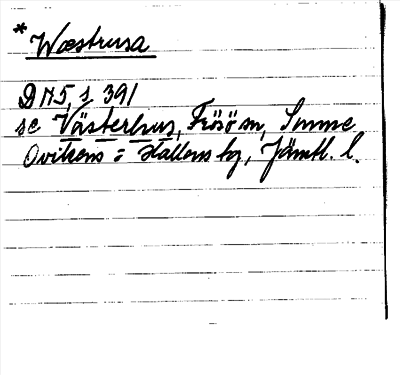 * Wæstrusa
DN 5, s 391
se Västerhus, Frösö sn, Sunne
Ovikens o Hallens tg, Jämtl. l.